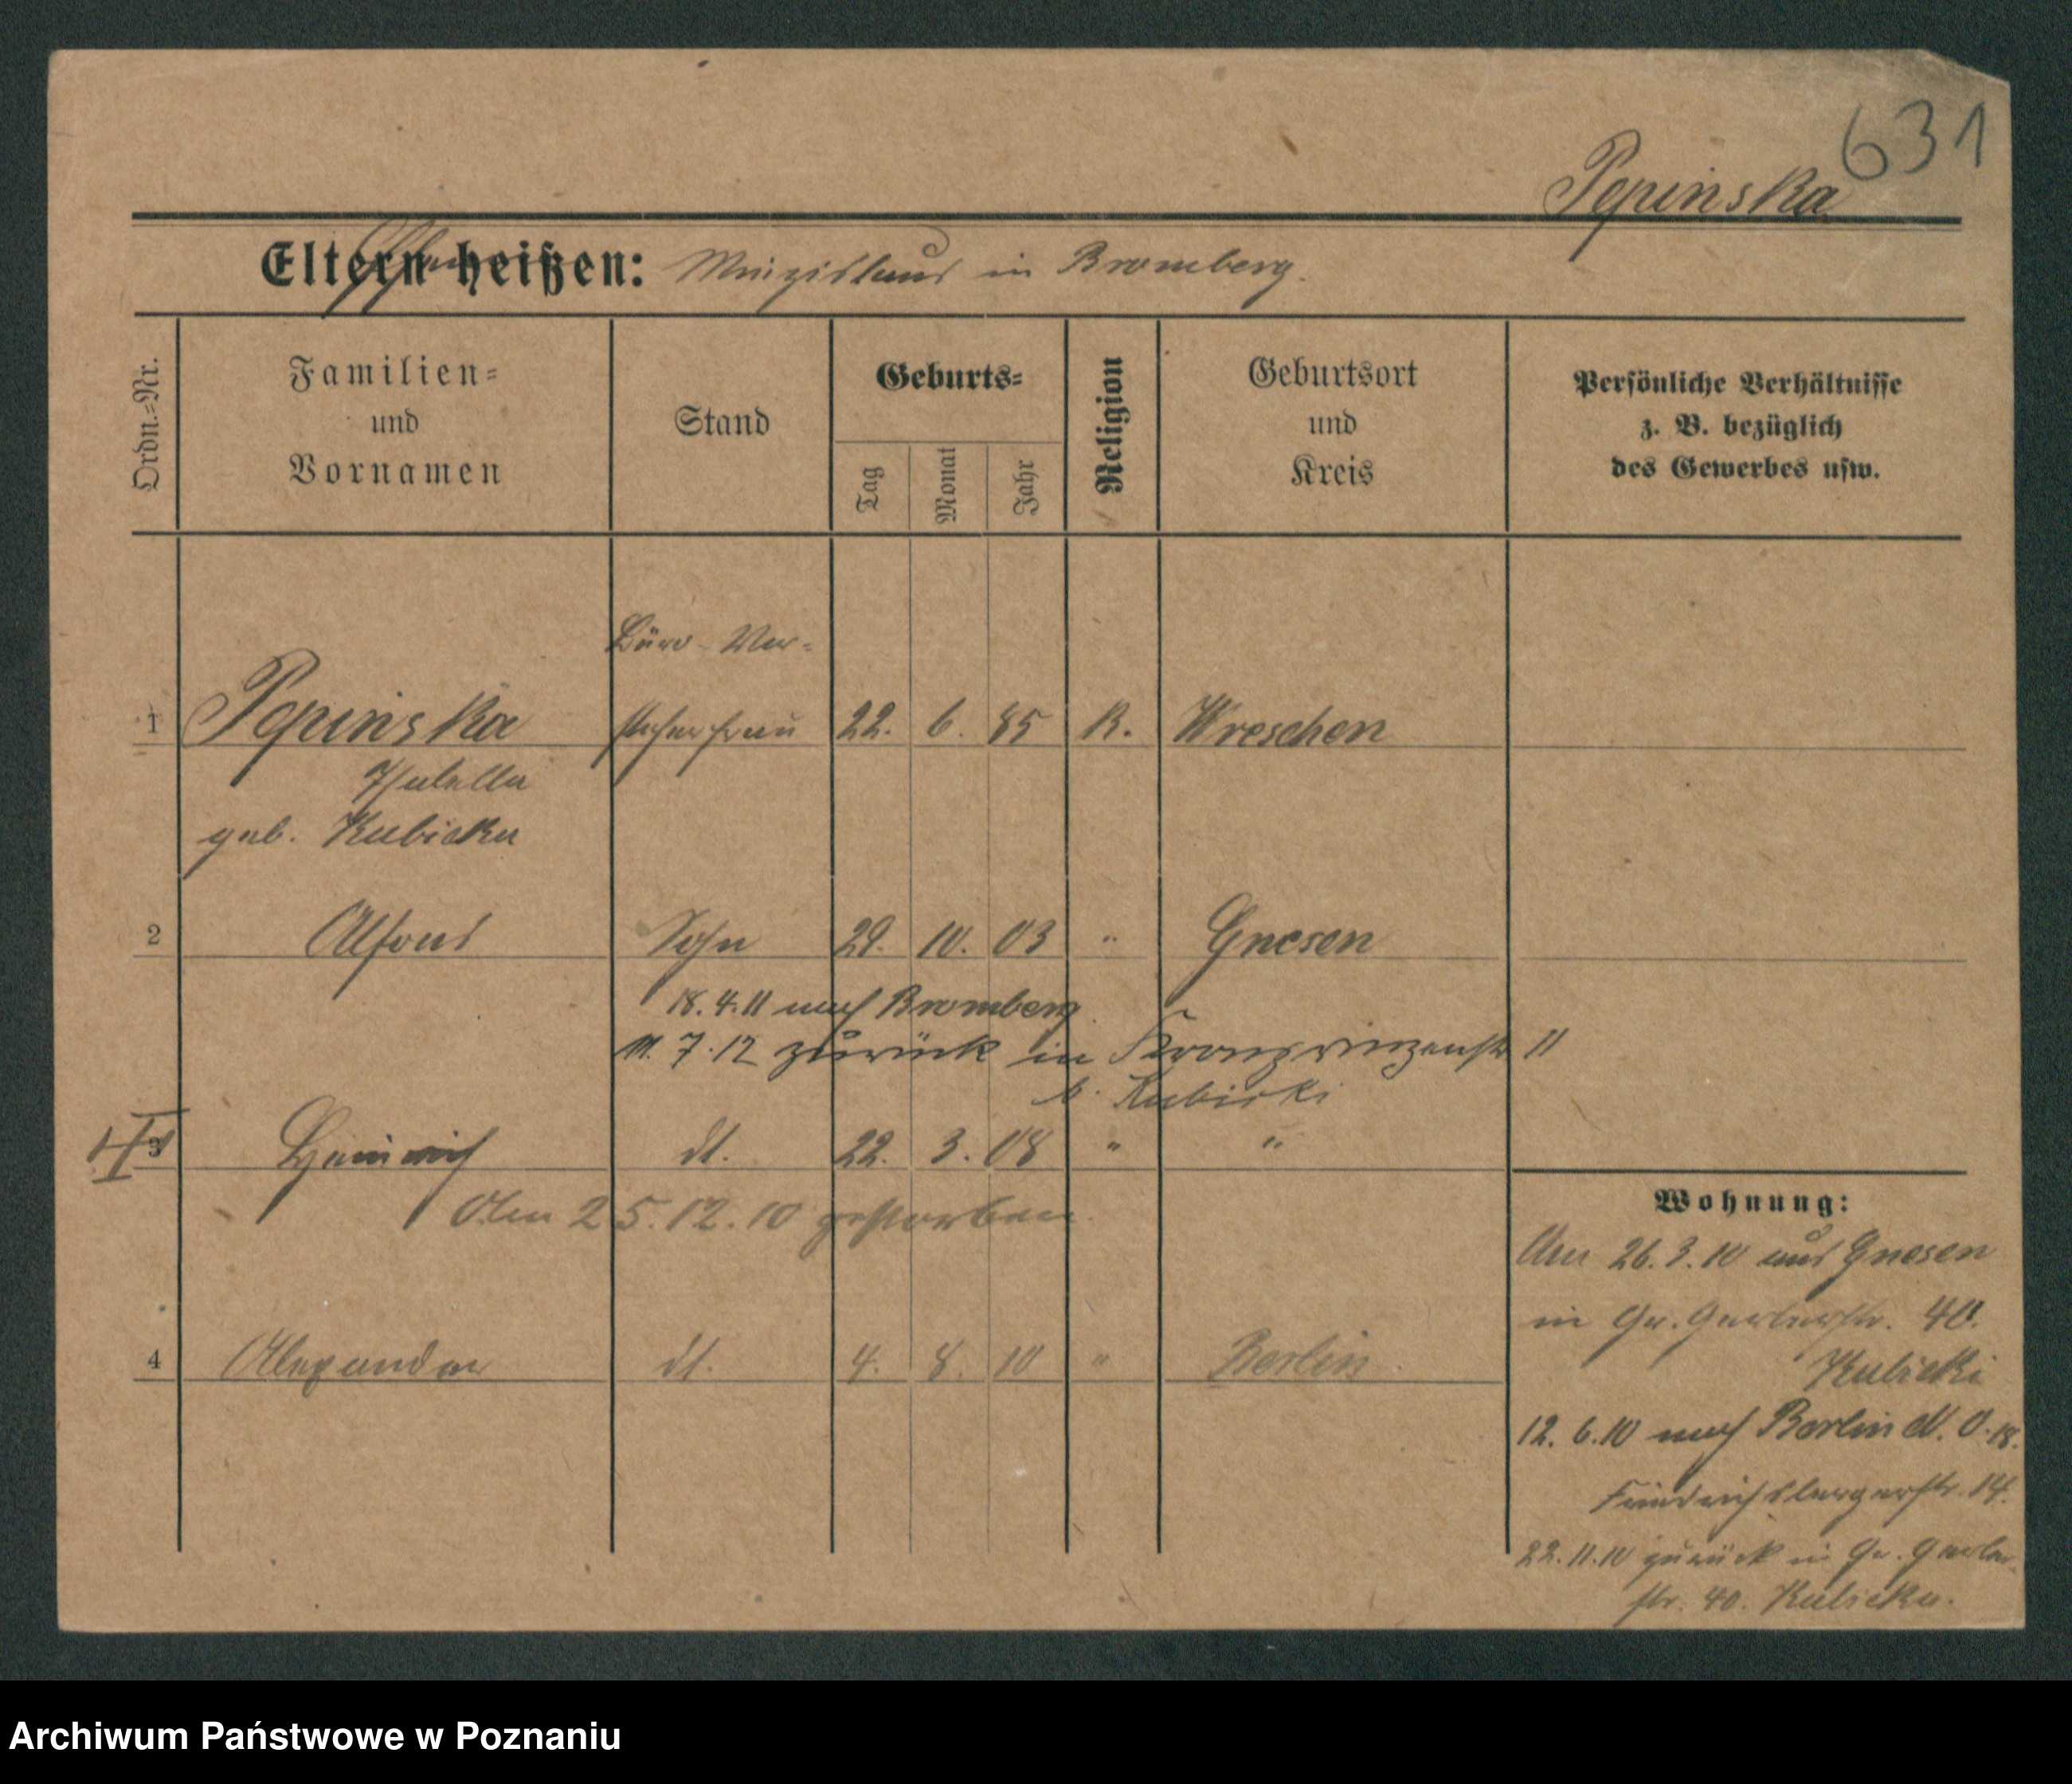 631
Pepinska
Eltern heißen: in Bromberg.
Ordn.-Nr.
Familien-
und
Vornamen
Stand
Geburts-
Tag
Monat
Jahr
Religion
Geburtsort
und
Kreis
Persönliche Verhältnisse
z. B. bezüglich
des Gewerbes usw.
Büro-Vor-
1 Pepinska steherfrau 22. 6. 85 K. Wreschen
Isabella
geb. Kubicka
2 Alfons Sohn 29. 10. 03 " Gnesen
18.4.11 nach Bromberg
11.7.12 zurück in Kronprinzenstr 11
b. Kubicki
3 Heinrich dt. 22. 3. 08 " "
Am 25.12.10 gestorben.
4 Alexander dt. 4. 8. 10 " Berlin.
Wohnung:
Am 26.3.10 aus Gnesen
in Gr. Gerberstr. 40.
Kubicki
12.6.10 nach Berlin N.O. 18.
Friedrichsbergerstr. 14.
22.11.10 zurück in Gr. Gerber
str. 40. Kubicka.
Archiwum Państwowe w Poznaniu